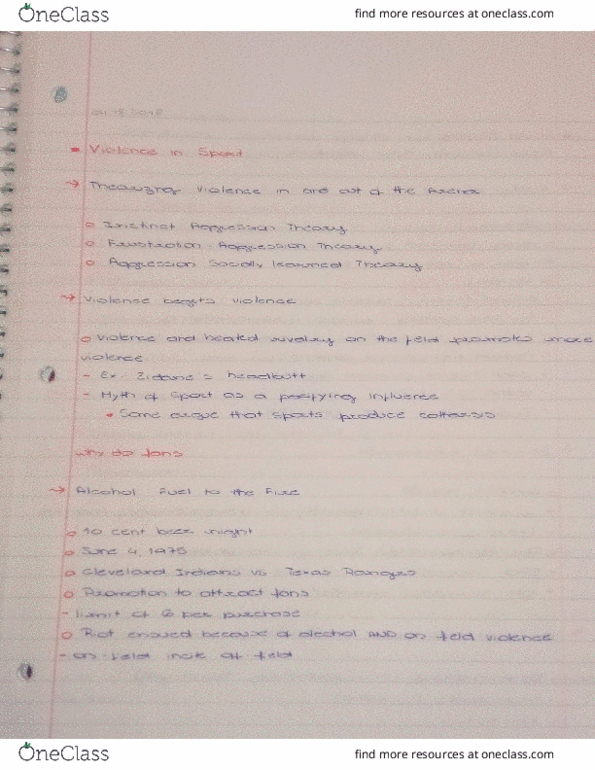 OneClass
find more resources at oneclass.com
Violence in Sport
→ Theorizing Violence in and out of the Arena
Instinct Aggression Theory
Frustration - Aggression Theory
Aggression Socially learned Theory
→ Violence begets violence
Violence and heated rivalry on the field promotes more
violence
- Ex. Zidane's headbutt
- Myth of sport as a pacifying influence
Some argue that sports produce catharsis
Why do fans
→ Alcohol: Fuel to the Fire
10 cent beer night
June 4, 1975
Cleveland Indians vs. Texas Rangers
Promotion to attract fans
- limit of 6 per purchase
Riot ensued because of alcohol AND on field violence
- on field incite off field
OneClass
find more resources at oneclass.com